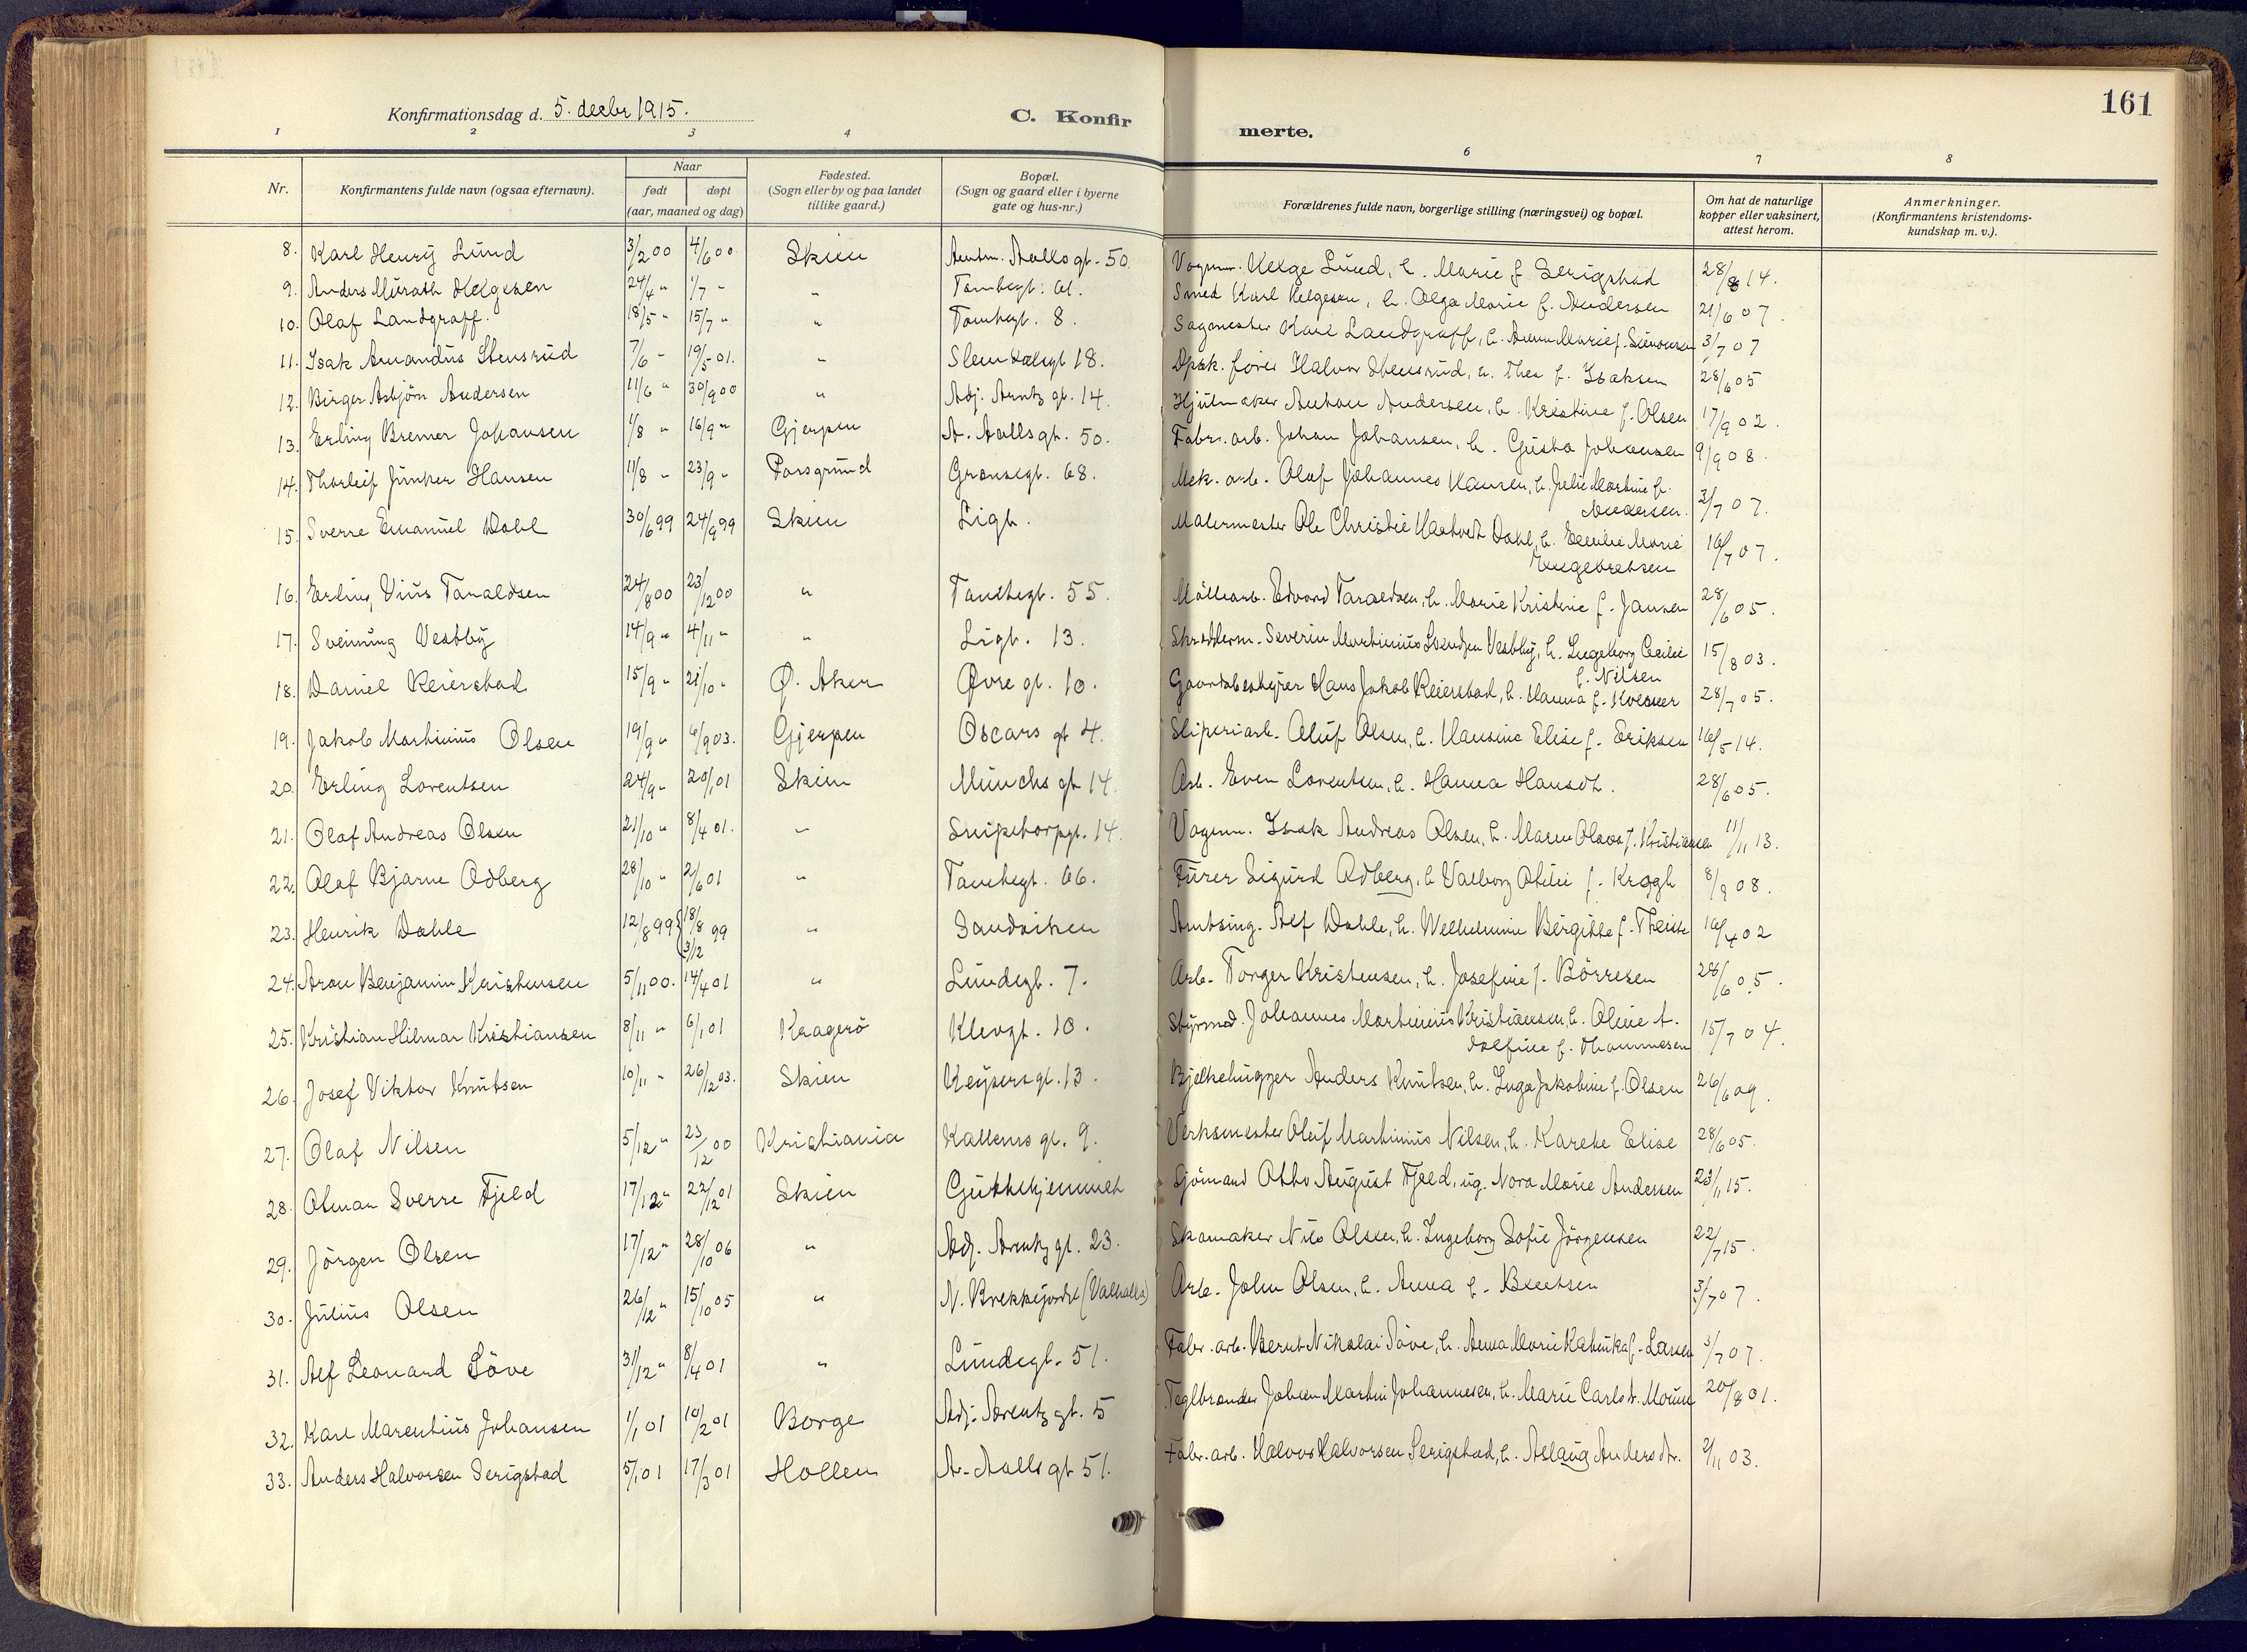 161
Konfirmationsdag d. 5. decbr 1915.
C. Konfir
merte.
1 2 3 4 6 7 8
Nr.
Konfirmantens fulde navn (ogsaa efternavn).
Naar
født
døpt
(aar, maaned og dag)
Fødested.
(Sogn eller by og paa landet
tillike gaard.)
Bopæl.
(Sogn og gaard eller i byerne
gate og hus-nr.)
Forældrenes fulde navn, borgerlige stilling (næringsvei) og bopæl.
Om hat de naturlige
kopper eller vaksinert,
attest herom.
Anmerkninger.
(Konfirmantens kristendoms-
kundskap m. v.).
8. Karl Henry Lund 3/2 00 4/6 00 Skien Aalls gt. 50 Helge Lund, h. Marie f. Serigstad 28/8 14.
9. Anders Murath Helgesen 24/4 " 1/7 " " 61. Smed Karl Helgesen, h. Olga Marie f. Andersen 21/6 07.
10. Olaf Landgraff. 18/5 " 15/7 " " 8. Sagmester Karl Landgraff, h. Anna Marie f. Simonsen 3/7 07
11. Isak Amandus Stensrud 7/6 " 19/5 01. " Slemdalsgt 18. Dpsk. fører Halvor Stensrud, h. Thea f. Isaksen 28/6 05
12. Birger Asbjörn Andersen 11/6 " 30/9 00 " Adj. Arntz gt. 14. Hjulmaker Anton Andersen, h. Kristine f. Olsen 17/9 02.
13. Erling Bremer Johansen 1/8 " 16/9 " Gjerpen A. Aalls gt. 50. Fabr. arb. Johan Johansen, h. Gusta Johansen 9/9 08.
14. Thorleif Junker Hansen 11/8 " 23/9 " Porsgrund Grænsegt. 68. Mek. arb. Olaf Johannes Hansen, h. Julie Martine f.
Andersen. 3/7 07.
15. Sverre Emanuel Dahl 30/6 99 24/9 99 Skien Ligt. Malermester Ole Christie Hartvedt Dahl, h. Emilie Marie
Engebretsen 16/7 07.
16. Erling Vius Taraldsen 24/8 00 23/12 00 " 55. Möllearb. Edvard Taraldsen, h. Marie Kristine f. Jansen 28/6 05.
17. Sveinung Vestby 14/9 " 4/11 " " Ligt. 13. Skrædderm. Severin Martinius Svendsen Vestby, h. Ingeborg Cecilie
f. Nilsen 15/8 03.
18. Daniel Reierstad 15/9 " 21/10 " Ø. Aker Øvre gt. 10. Gaardsbestyrer Hans Jakob Reierstad, h. Hanna f. 28/7 05.
19. Jakob Martinius Olsen 19/9 " 6/9 03. Gjerpen Oscars gt 4. Sliperiarb. Oluf Olsen, h. Hansine Elise f. Eriksen 16/5 14.
20. Erling Lorentsen 24/9 " 20/1 01 Skien Munchs gt 14. Arb. Even Lorentsen, h. Hanna Hansdt. 28/6 05.
21. Olaf Andreas Olsen 21/10 " 8/4 01. " Snipetorpgt. 14. Vognm. Isak Andreas Olsen, h. Maren Olava f. Kristiansen 11/11 13.
22. Olaf Bjarne Odberg 28/10 " 2/6 01 " 66. Furer Sigurd Odberg, h Valborg Otilie f. Krogh 8/9 08.
23. Henrik Dahle 12/8 99 18/8 99 3/12 " Sandviken Amtsing. Alf Dahle, h. Birgitte f. 16/4 02
24. Aron Benjamin Kristensen 5/11 00. 14/4 01 " Lundegt. 7. Arb. Torger Kristensen, h. Josefine f. Börresen 28/6 05.
25. Kristian Hilmar Kristiansen 8/11 " 6/1 01 Kragerö Klevgt. 10. Styrmd. Johannes Martinius Kristiansen, h. Oline A-
dolfine f. Thommesen 15/7 04.
26. Josef Viktor Knutsen 10/11 " 26/12 03. Skien Keysers gt. 13. Bjelkehugger Anders Knutsen, h. Inga Jakobine f. Olsen 26/6 09.
27. Olaf Nilsen 5/12 " 23/12 00 Kristiania Kallems gt. 9. Verksmester Oluf Martinius Nilsen, h. Karete Elise 28/6 05.
28. Otmar Sverre Fjeld 17/12 " 22/12 01 Skien Guttehjemmet Sjömand Otto August Fjeld, ug. Nora Marie Andersen 23/11 15.
29. Jörgen Olsen 17/12 " 28/10 06 " Adj. Arntz gt. 23. Skomaker Nils Olsen, h. Ingeborg Sofie Jörgensen 22/7 15.
30. Julius Olsen 26/12 " 15/10 05 " N. Brekkejordet (Valhalla) Arb. John Olsen, h. Anna f. Bentsen 3/7 07.
31. Alf Leonard Söve 31/12 " 8/4 01 " Lundegt. 51. Fabr. arb. Bernt Nikolai Söve, h. Anna Marie Katinka f. Larsen 3/7 07.
32. Karl Marentius Johansen 1/1 01 10/2 01 Borge Adj. Arentz gt. 5 Teglbrænder Johan Martin Johannesen, h. Marie Carls dt. 20/8 01.
33. Anders Halvorsen Serigstad 5/1 01 17/3 01 Hollen A. Aalls gt 51. Fabr. arb. Halvor Halvorsen Serigstad, h. Aslaug Anders dtr. 2/11 03.